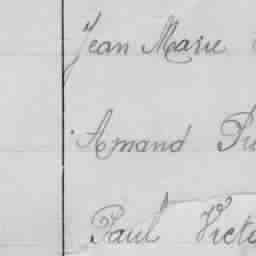 Jean Marie
Amand
Paul Victo